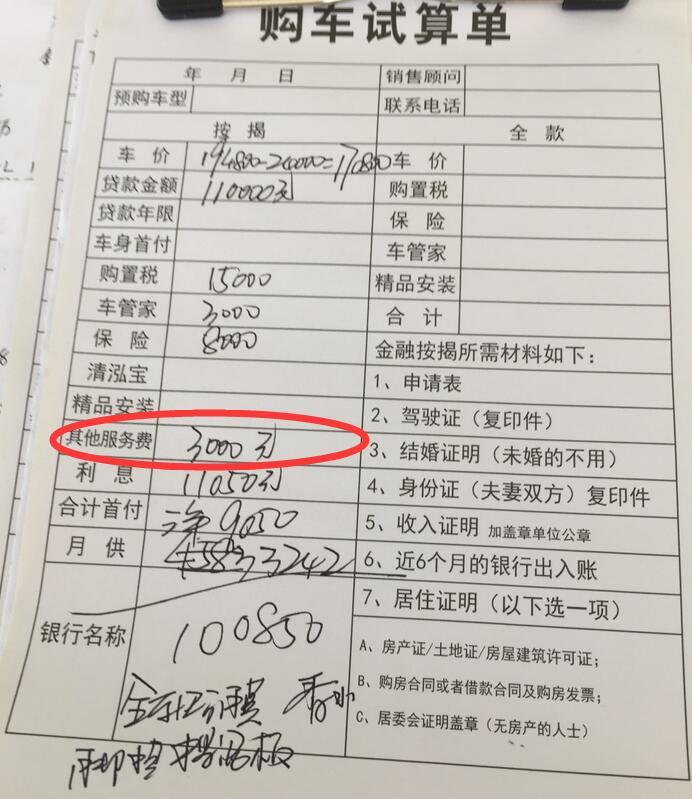 购车试算单
年 月 日 销售顾问
预购车型 联系电话
按揭 全款
车价 194800-24000=170800 车价
贷款金额 110000元 购置税
贷款年限 保险
车身首付 车管家
购置税 15000 精品安装
车管家 3000 合计
保险 8000 金融按揭所需材料如下：
清泓宝 1、申请表
精品安装 2、驾驶证（复印件）
其他服务费 3000元 3、结婚证明（未婚的不用）
利息 11050元 4、身份证（夫妻双方）复印件
合计首付 9050 5、收入证明 加盖章单位公章
月供 6、近6个月的银行出入账
7、居住证明（以下选一项）
银行名称 100850 A、房产证/土地证/房屋建筑许可证；
B、购房合同或者借款合同及购房发票；
C、居委会证明盖章（无房产的人士）